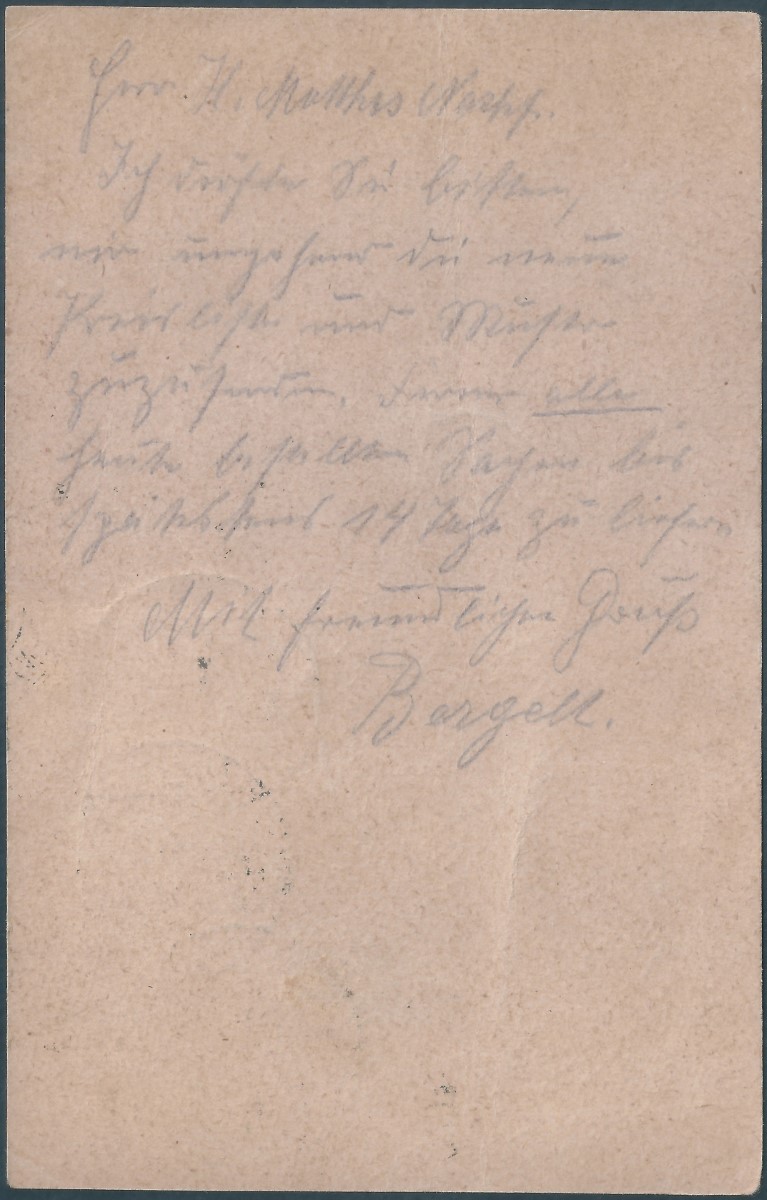 Herr H. Matthes Nachf.
Ich möchte Sie bitten,
mir umgehend die neue
Preisliste und Muster
zuzusenden, ferner alle
heute bestellten Sachen bis
spätestens 14 Tage zu liefern
Mit freundlichen Gruß
Bergell.